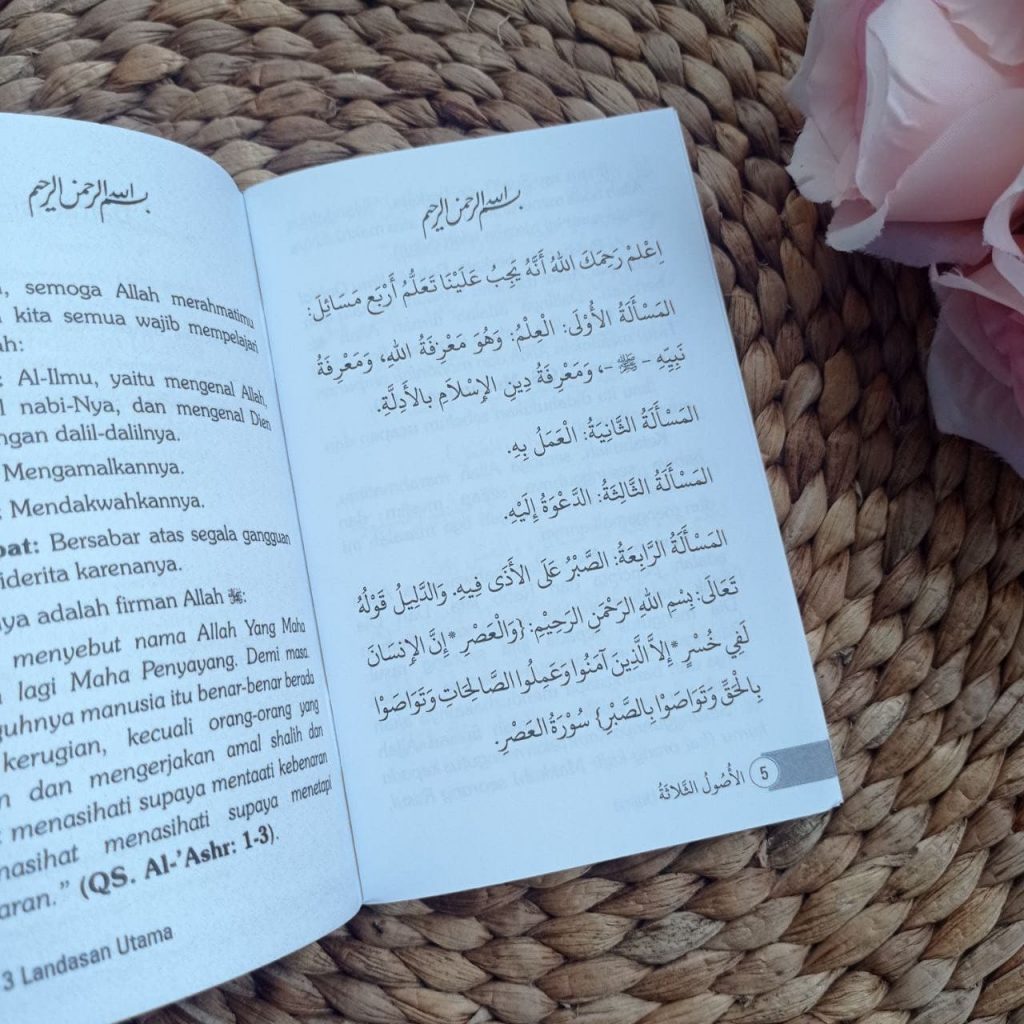 بسم الله الرحمن الرحيم
semoga Allah merahmatimu
kita semua wajib mempelajari
Al-Ilmu, yaitu mengenal Allah,
nabi-Nya, dan mengenal Dien
dalil-dalilnya.
Mengamalkannya.
: Mendakwahkannya.
Bersabar atas segala gangguan
karenanya.
adalah firman Allah ﷻ:
menyebut nama Allah Yang Maha
lagi Maha Penyayang. Demi masa.
manusia itu benar-benar berada
kerugian, kecuali orang-orang yang
dan mengerjakan amal shalih dan
menasihati supaya mentaati kebenaran
menasihati supaya menetapi
(QS. Al-'Ashr: 1-3).
3 Landasan Utama
بسم الله الرحمن الرحيم
اِعْلَمْ رَحِمَكَ اللهُ أَنَّهُ يَجِبُ عَلَيْنَا تَعَلُّمُ أَرْبَعِ مَسَائِلَ:
المَسْأَلَةُ الأُوْلَى: الْعِلْمُ: وَهُوَ مَعْرِفَةُ اللهِ، وَمَعْرِفَةُ
نَبِيِّهِ – ﷺ –، وَمَعْرِفَةُ دِينِ الإِسْلَامِ بالأَدِلَّةِ.
المَسْأَلَةُ الثَّانِيَةُ: الْعَمَلُ بِهِ.
المَسْأَلَةُ الثَّالِثِةُ: الدَّعْوَةُ إِلَيْهِ.
المَسْأَلَةُ الرَّابِعَةُ: الصَّبْرُ عَلَى الأَذَى فِيهِ. وَالدَّلِيلُ قَوْلُهُ
تَعَالَى: بِسْمِ اللهِ الرَّحْمَنِ الرَّحِيْمِ: {وَالْعَصْرِ * إِنَّ الإِنْسَانَ
لَفِي خُسْرٍ * إِلَّا الَّذِينَ آمَنُوا وَعَمِلُوا الصَّالِحَاتِ وَتَوَاصَوْا
بِالْحَقِّ وَتَوَاصَوْا بِالصَّبْرِ} سُوْرَةُ العَصْرِ.
الأُصُولُ الثَّلَاثَةُ 5